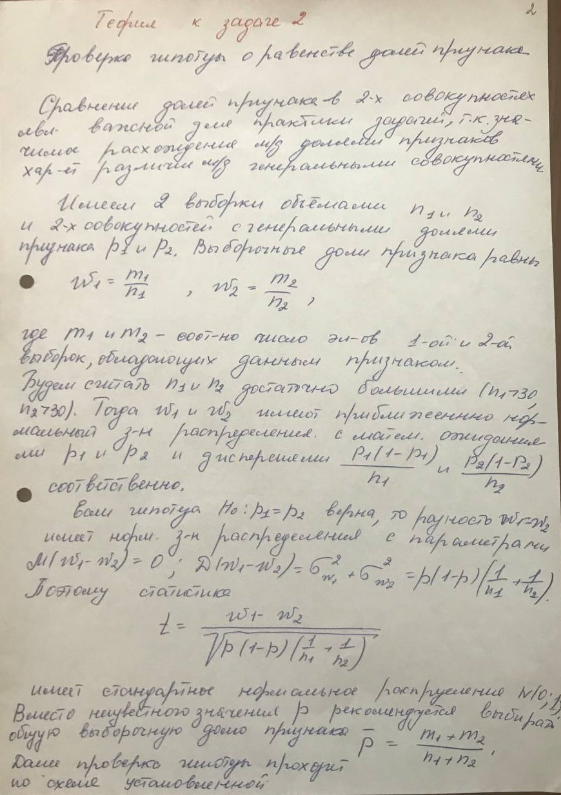 2
Теория к задаче 2
Проверка гипотезы о равенстве долей признака
Сравнение долей признака в 2-х совокупностях
явл. важной для практики задачей, т.к. зна-
чимое расхождение м/д долями признаков
хар-ет различия м/д генеральными совокупностями
Имеем 2 выборки объёмами n1 и n2
и 2-х совокупностей с генеральными долями
признака p1 и p2. Выборочные доли признака равны
w1 = m1/n1 , w2 = m2/n2 ,
где m1 и m2 – соот-но число эл-ов 1-ой и 2-ой
выборок, обладающих данным признаком.
Будем считать n1 и n2 достаточно большими (n1>30,
n2>30). Тогда w1 и w2 имеют приближенно нор-
мальный з-н распределения с матем. ожидания-
ми p1 и p2 и дисперсиями p1(1-p1)/n1 и p2(1-p2)/n2
соответственно.
Если гипотеза H0: p1=p2 верна, то разность w1-w2
имеет норм. з-н распределения с параметрами
M(w1-w2)=0 ; D(w1-w2)=σ²w1+σ²w2=p(1-p)(1/n1+1/n2).
Поэтому статистика
t = (w1-w2)/√(p(1-p)(1/n1+1/n2))
имеет стандартное нормальное распределение N(0;1)
Вместо неизвестного значения p рекомендуется выбирать
общую выборочную долю признака p̄ = (m1+m2)/(n1+n2).
Далее проверка гипотезы проходит
по схеме установленной